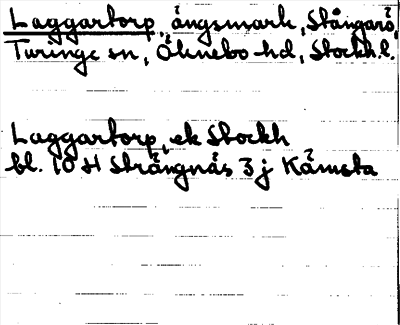 Laggartorp, ängsmark, Stångarö,
Turinge sn, Öknebo hd, Stockh.l.
Laggartorp, ek Stockh
bl. 10 H Strängnäs 3 j Kämsta